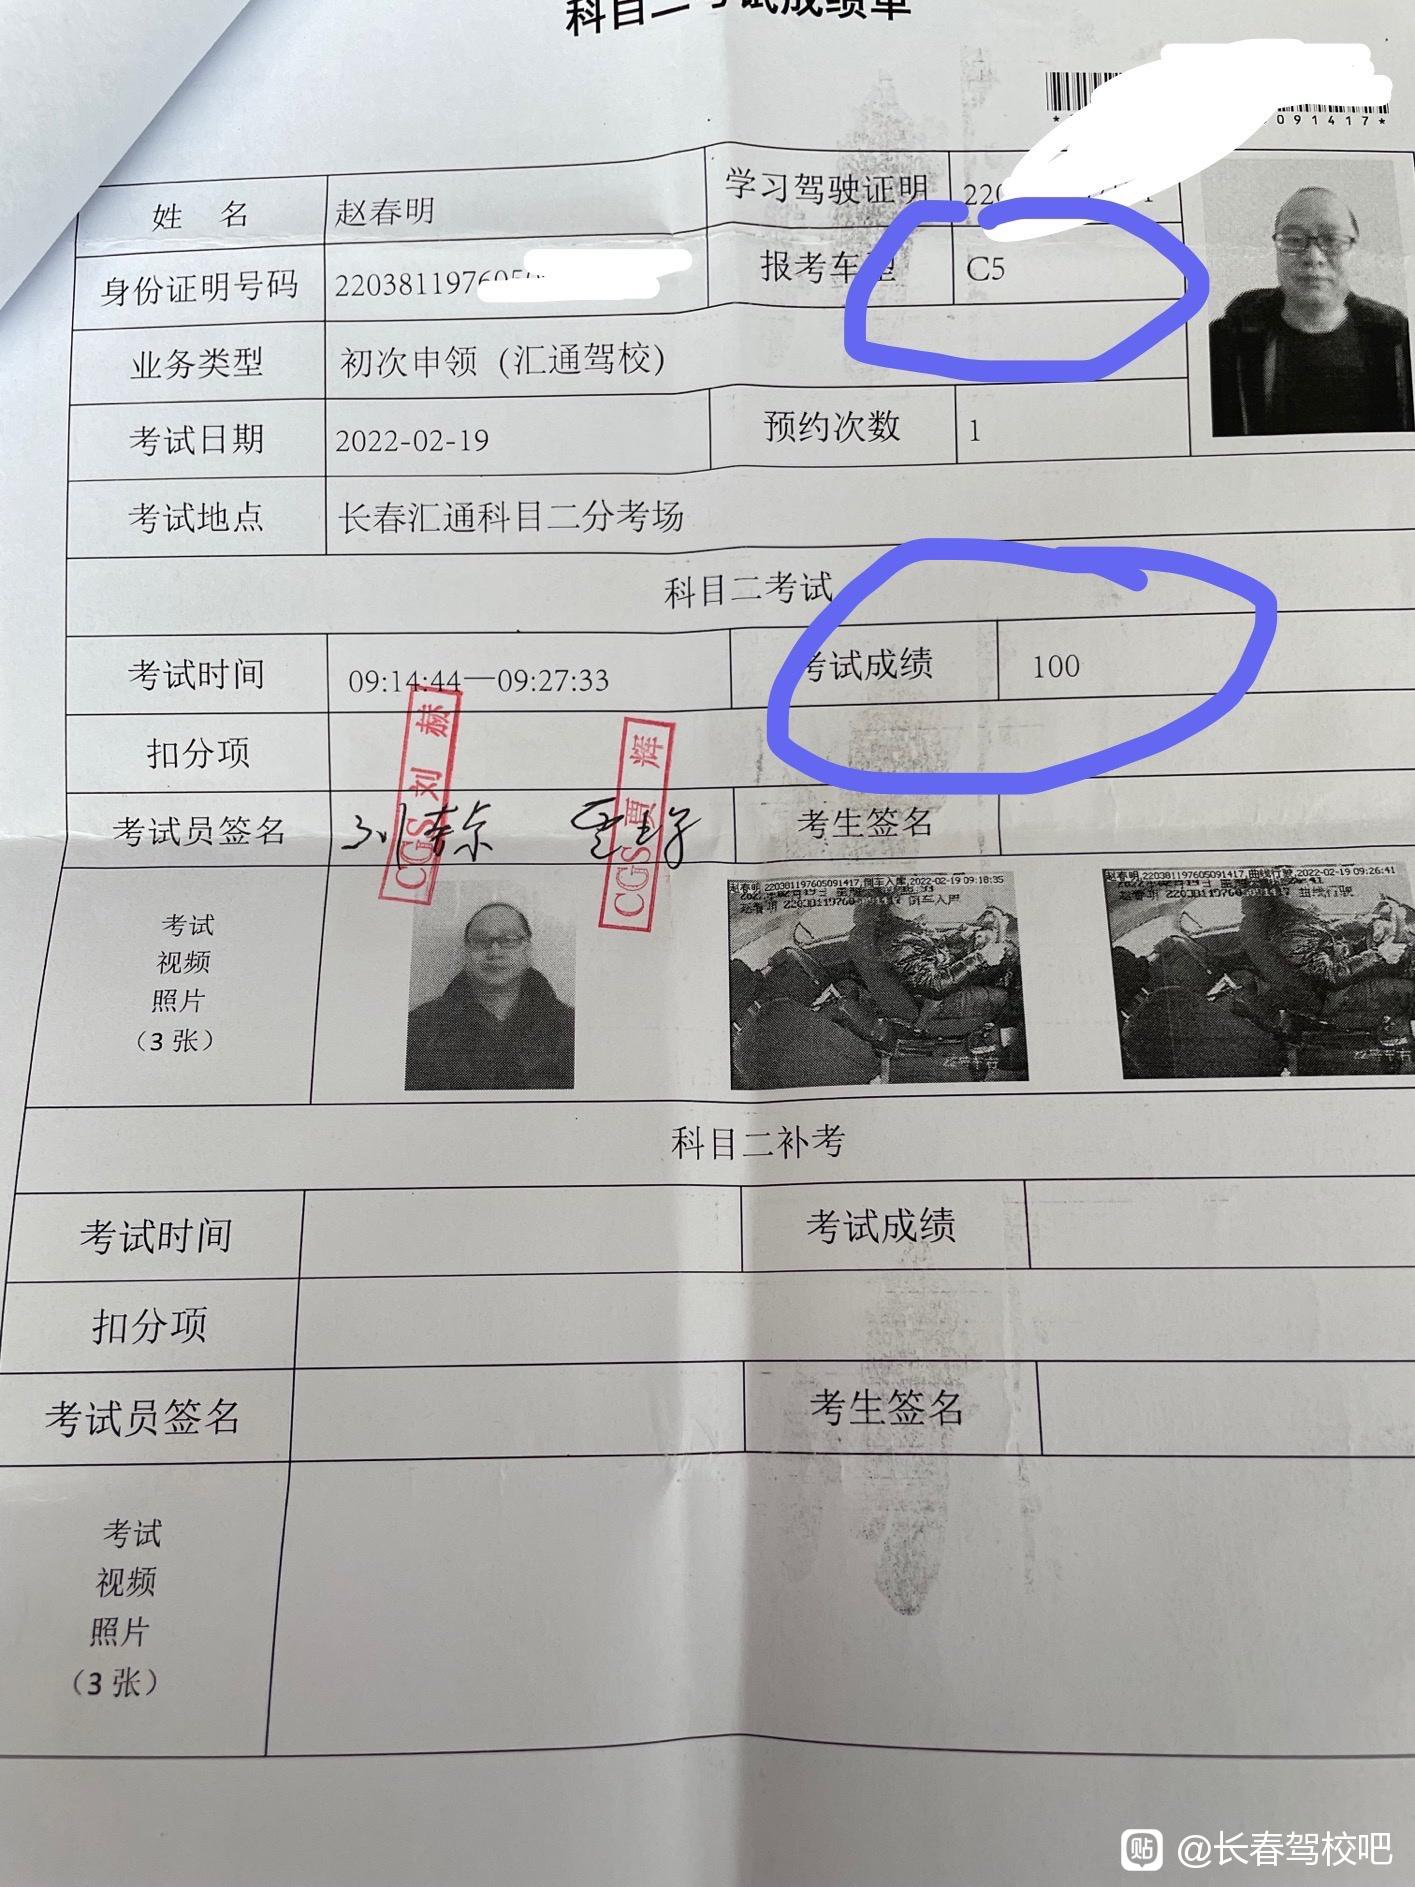 科目二考试成绩单
091417*
姓 名 赵春明 学习驾驶证明 220
身份证明号码 2203811976 报考车型 C5
业务类型 初次申领（汇通驾校）
考试日期 2022-02-19 预约次数 1
考试地点 长春汇通科目二分考场
科目二考试
考试时间 09:14:44—09:27:33 考试成绩 100
扣分项
CGS 刘 赫
CGS 贾 辉
考试员签名 考生签名
考试
视频
照片
（3 张）
赵春明 倒车入库 2022-02-19 09:18:35
赵春明 倒车入库
赵春明 曲线行驶 2022-02-19 09:26:41
赵春明 曲线行驶
科目二补考
考试时间 考试成绩
扣分项
考试员签名 考生签名
考试
视频
照片
（3 张）
贴 @长春驾校吧